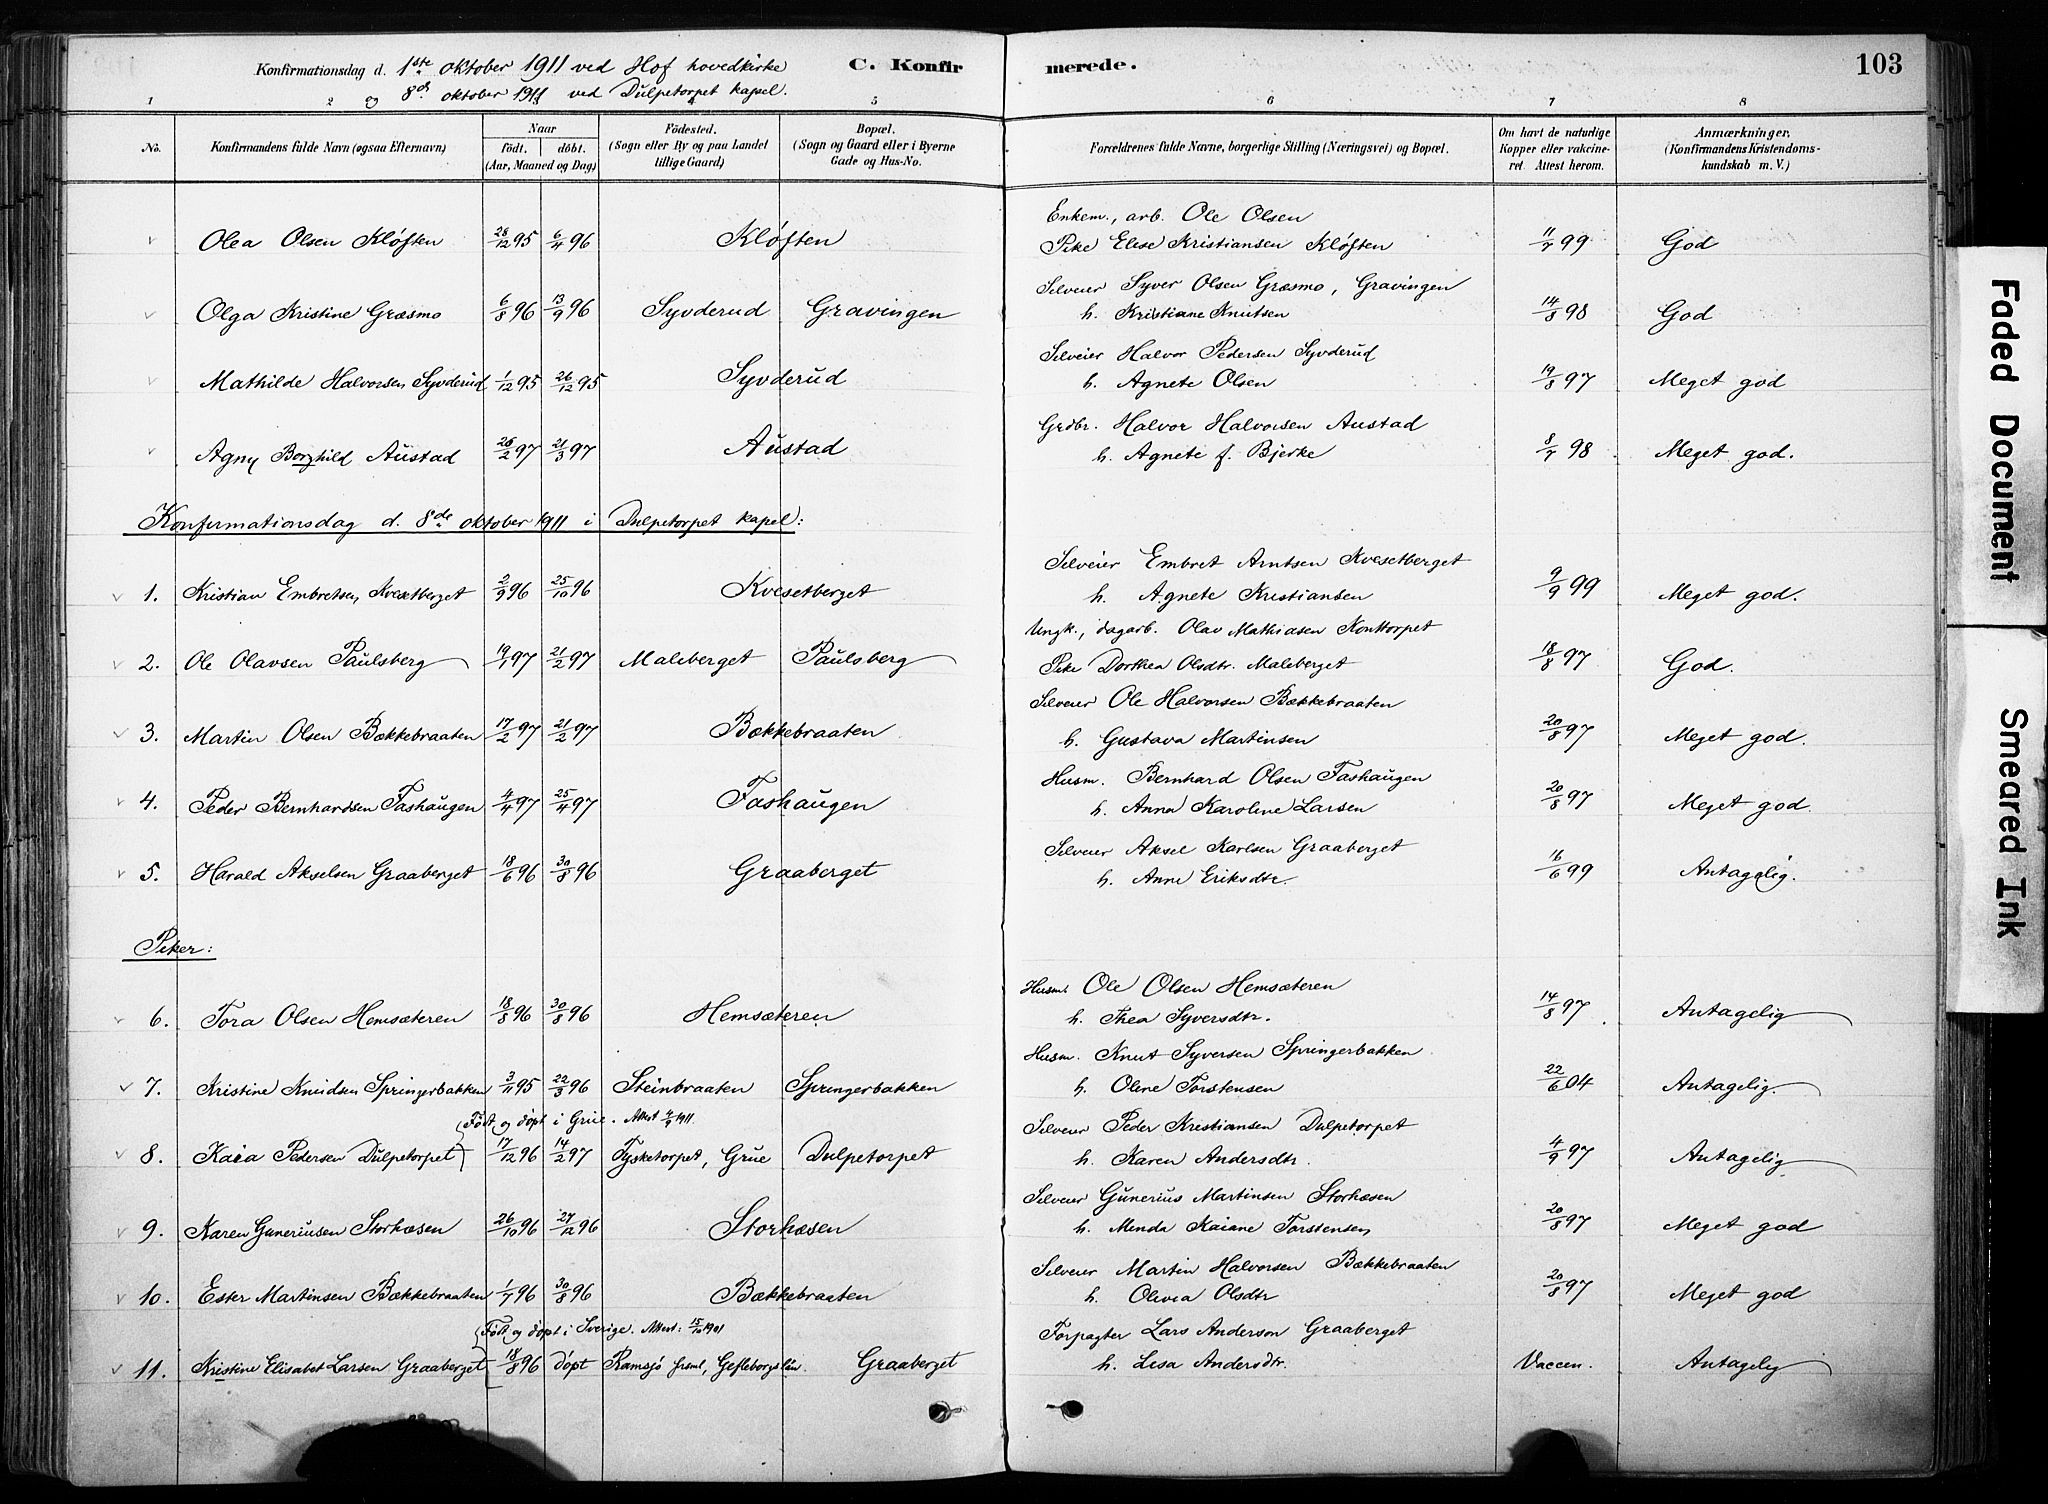 Konfirmationsdag d. 1ste oktober 1911 ved Hof hovedkirke C. Konfirmerede. 103
og 8de oktober 1911 ved Dulpetorpet kapel.
1 2 3 4 5 6 7 8
No. Konfirmandens fulde Navn (ogsaa Efternavn) Naar födt. döbt. (Aar, Maaned og Dag) Födested. (Sogn eller By og paa Landet tillige Gaard) Bopæl. (Sogn og Gaard eller i Byerne Gade og Hus-No. Forældrenes fulde Navne, borgerlige Stilling (Næringsvei) og Bopæl. Om havt de naturlige Kopper eller vakcineret. Attest herom. Anmærkninger. (Konfirmandens Kristendomskundskab m. V.)
Enkem., arb. Ole Olsen
Olea Olsen Kløften 28/12 95 6/4 96 Kløften Pike Elise Kristiansen Kløften 11/7 99 God
Selveier Syver Olsen Græsmo, Gravingen
Olga Kristine Græsmo 6/8 96 13/9 96 Syvderud Gravingen h. Kristiane Knutsen 14/8 98 God
Selveier Halvor Pedersen Syvderud
Mathilde Halvorsen Syvderud 1/12 95 26/12 95 Syvderud h. Agnete Olsen 19/8 97 Meget god
Grdbr. Halvor Halvorsen Austad
Agny Borghild Austad 26/2 97 21/3 97 Austad h. Agnete f. Bjerke 8/7 98 Meget god.
Konfirmationsdag d. 8de oktober 1911 i Dulpetorpet kapel:
Selveier Embret Arntsen Kvesetberget
1. Kristian Embretsen Kvesetberget 2/9 96 25/10 96 Kvesetberget h. Agnete Kristiansen 9/9 99 Meget god.
Ungk., dagarb. Olav Mathiasen Konttorpet
2. Ole Olavsen Paulsberg 19/1 97 21/2 97 Maleberget Paulsberg Pike Dorthea Olsdtr. Maleberget 18/8 97 God.
Selveier Ole Halvorsen Bækkebraaten
3. Martin Olsen Bækkebraaten 17/2 97 21/2 97 Bækkebraaten h. Gustava Martinsen 20/8 97 Meget god.
Husm. Bernhard Olsen Fashaugen
4. Peder Bernhardsen Fashaugen 4/4 97 25/4 97 Fashaugen h. Anna Karoline Larsen 20/8 97 Meget god.
Selveier Aksel Karlsen Graaberget
5. Harald Akselsen Graaberget 18/6 96 30/8 96 Graaberget h. Anne Eriksdtr. 16/6 99 Antagelig.
Piker:
Husm. Ole Olsen Hemsæteren
6. Tora Olsen Hemsæteren 18/8 96 30/8 96 Hemsæteren h. Thea Syversdtr. 14/8 97 Antagelig
Husm. Knut Syversen Springerbakken
7. Kristine Knudsen Springerbakken 3/11 95 22/3 96 Steinbraaten Springerbakken h. Oline Torstensen 22/6 04 Antagelig.
Født og døpt i Grue. Attest 4/9 1911. Selveier Peder Kristiansen Dulpetorpet
8. Kaia Pedersen Dulpetorpet 17/12 96 14/2 97 Tysketorpet, Grue Dulpetorpet h. Karen Andersdtr. 4/9 97 Antagelig
Selveier Gunerius Martinsen Storhæsen
9. Karen Guneriusen Storhæsen 26/10 96 27/12 96 Storhæsen h. Menda Kaiane Torstensen 20/8 97 Meget god
Selveier Martin Halvorsen Bækkebraaten
10. Ester Martinsen Bækkebraaten 1/7 96 30/8 96 Bækkebraaten h. Olivia Olsdtr 20/8 97 Meget god
Født og døpt i Sverige. Attest: 15/10 1901 Forpagter Lars Anderson Graaberget
11. Kristine Elisabet Larsen Graaberget 18/8 96 døpt Ramsjø frsml, Gefleborgs län. Graaberget h. Lisa Andersdtr. Vaccin. Antagelig
Faded Document
Smeared Ink